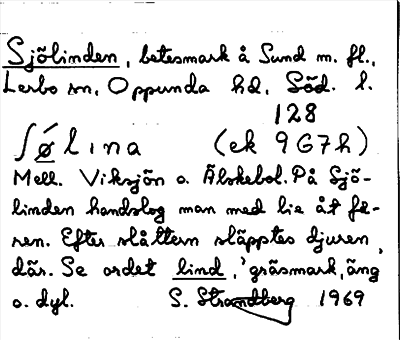 Sjölinden, betesmark å Sund m. fl.,
Lerbo sn, Oppunda hd, Söd. l.
128
ʃǿlına (ek 9G7h)
Mell. Viksjön o. Älskebol. På Sjö-
linden handslog man med lie åt få-
ren. Efter slåttern släpptes djuren
där. Se ordet lind, 'gräsmark, äng'
o. dyl. S. Strandberg 1969